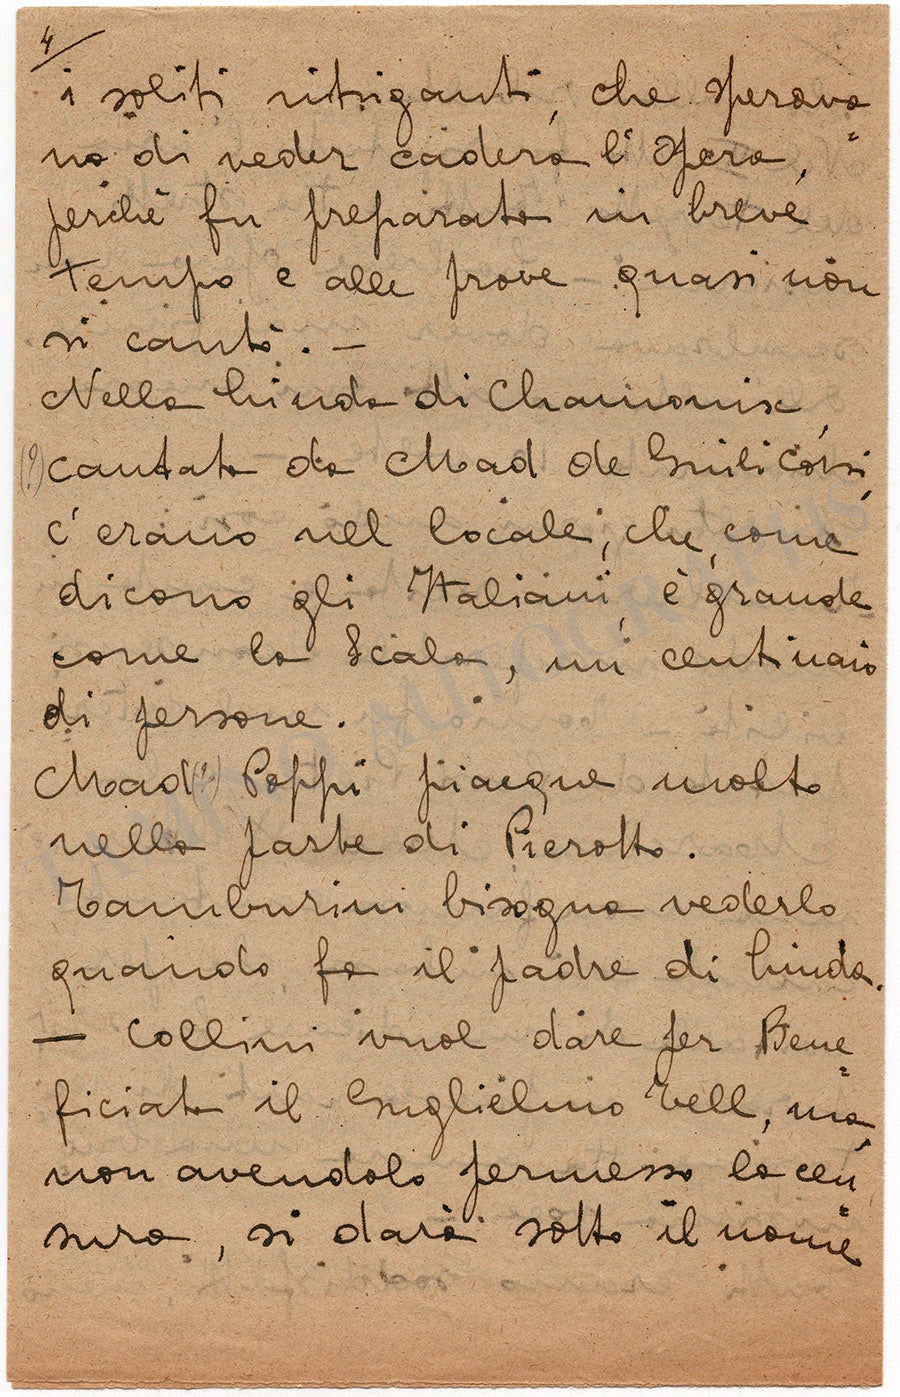 4
i soliti intriganti, che sperava=
no di veder cadere l'Opera,
perchè fu preparata in breve
tempo e alle prove quasi non
si cantò. —
Nella Linda di Chamonix,
(?) cantata da Mad de Giuli Corsi,
c'erano nel locale, che, come
dicono gli Italiani, è grande
come la Scala, un centinaio
di persone.
Mad(?) Poppi piacque molto
nella parte di Pierotto.
Tamburini bisogna vederlo
quando fa il padre di Linda.
— Collini vuol dare per Bene=
ficiata il Guglielmo Tell, ma,
non avendolo permesso la cen=
sura, si darà sotto il nome